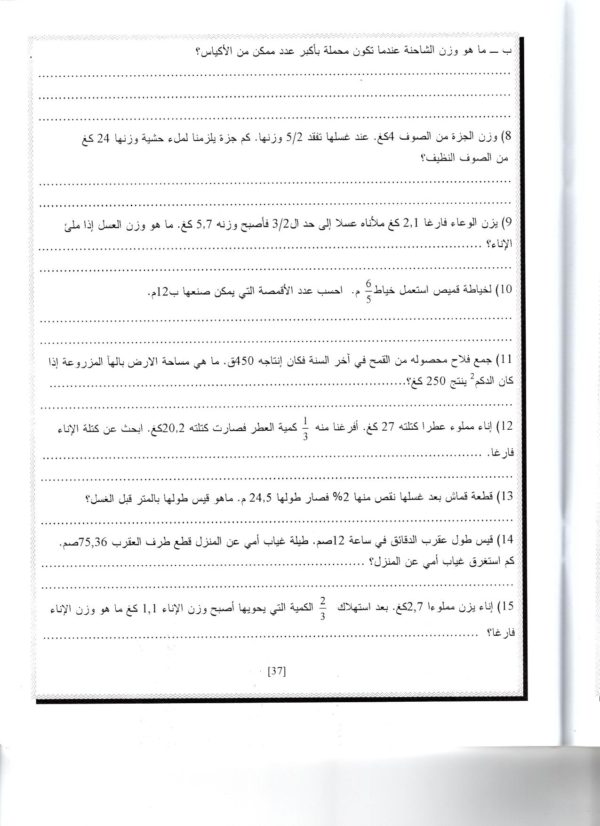 ب ـــ ما هو وزن الشاحنة عندما تكون محملة بأكبر عدد ممكن من الأكياس؟
8) وزن الجزة من الصوف 4كغ. عند غسلها تفقد 5/2 وزنها. كم جزة يلزمنا لملء حشية وزنها 24 كغ
من الصوف النظيف؟
9) يزن الوعاء فارغا 2,1 كغ ملأناه عسلا إلى حد ال3/2 فأصبح وزنه 5,7 كغ. ما هو وزن العسل إذا ملئ
الإناء؟
10) لخياطة قميص استعمل خياط 6/5 م. احسب عدد الأقمصة التي يمكن صنعها ب12م.
11) جمع فلاح محصوله من القمح في آخر السنة فكان إنتاجه 450ق. ما هي مساحة الارض بالهآ المزروعة إذا
كان الدكم² ينتج 250 كغ؟
12) إناء مملوء عطرا كتلته 27 كغ. أفرغنا منه 1/3 كمية العطر فصارت كتلته 20,2كغ. ابحث عن كتلة الإناء
فارغا.
13) قطعة قماش بعد غسلها نقص منها 2% فصار طولها 24,5 م. ماهو قيس طولها بالمتر قبل الغسل؟
14) قيس طول عقرب الدقائق في ساعة 12صم. طيلة غياب أمي عن المنزل قطع طرف العقرب 75,36صم.
كم استغرق غياب أمي عن المنزل؟
15) إناء يزن مملوءا 2,7كغ. بعد استهلاك 2/3 الكمية التي يحويها أصبح وزن الإناء 1,1 كغ ما هو وزن الإناء
فارغا؟
[37]